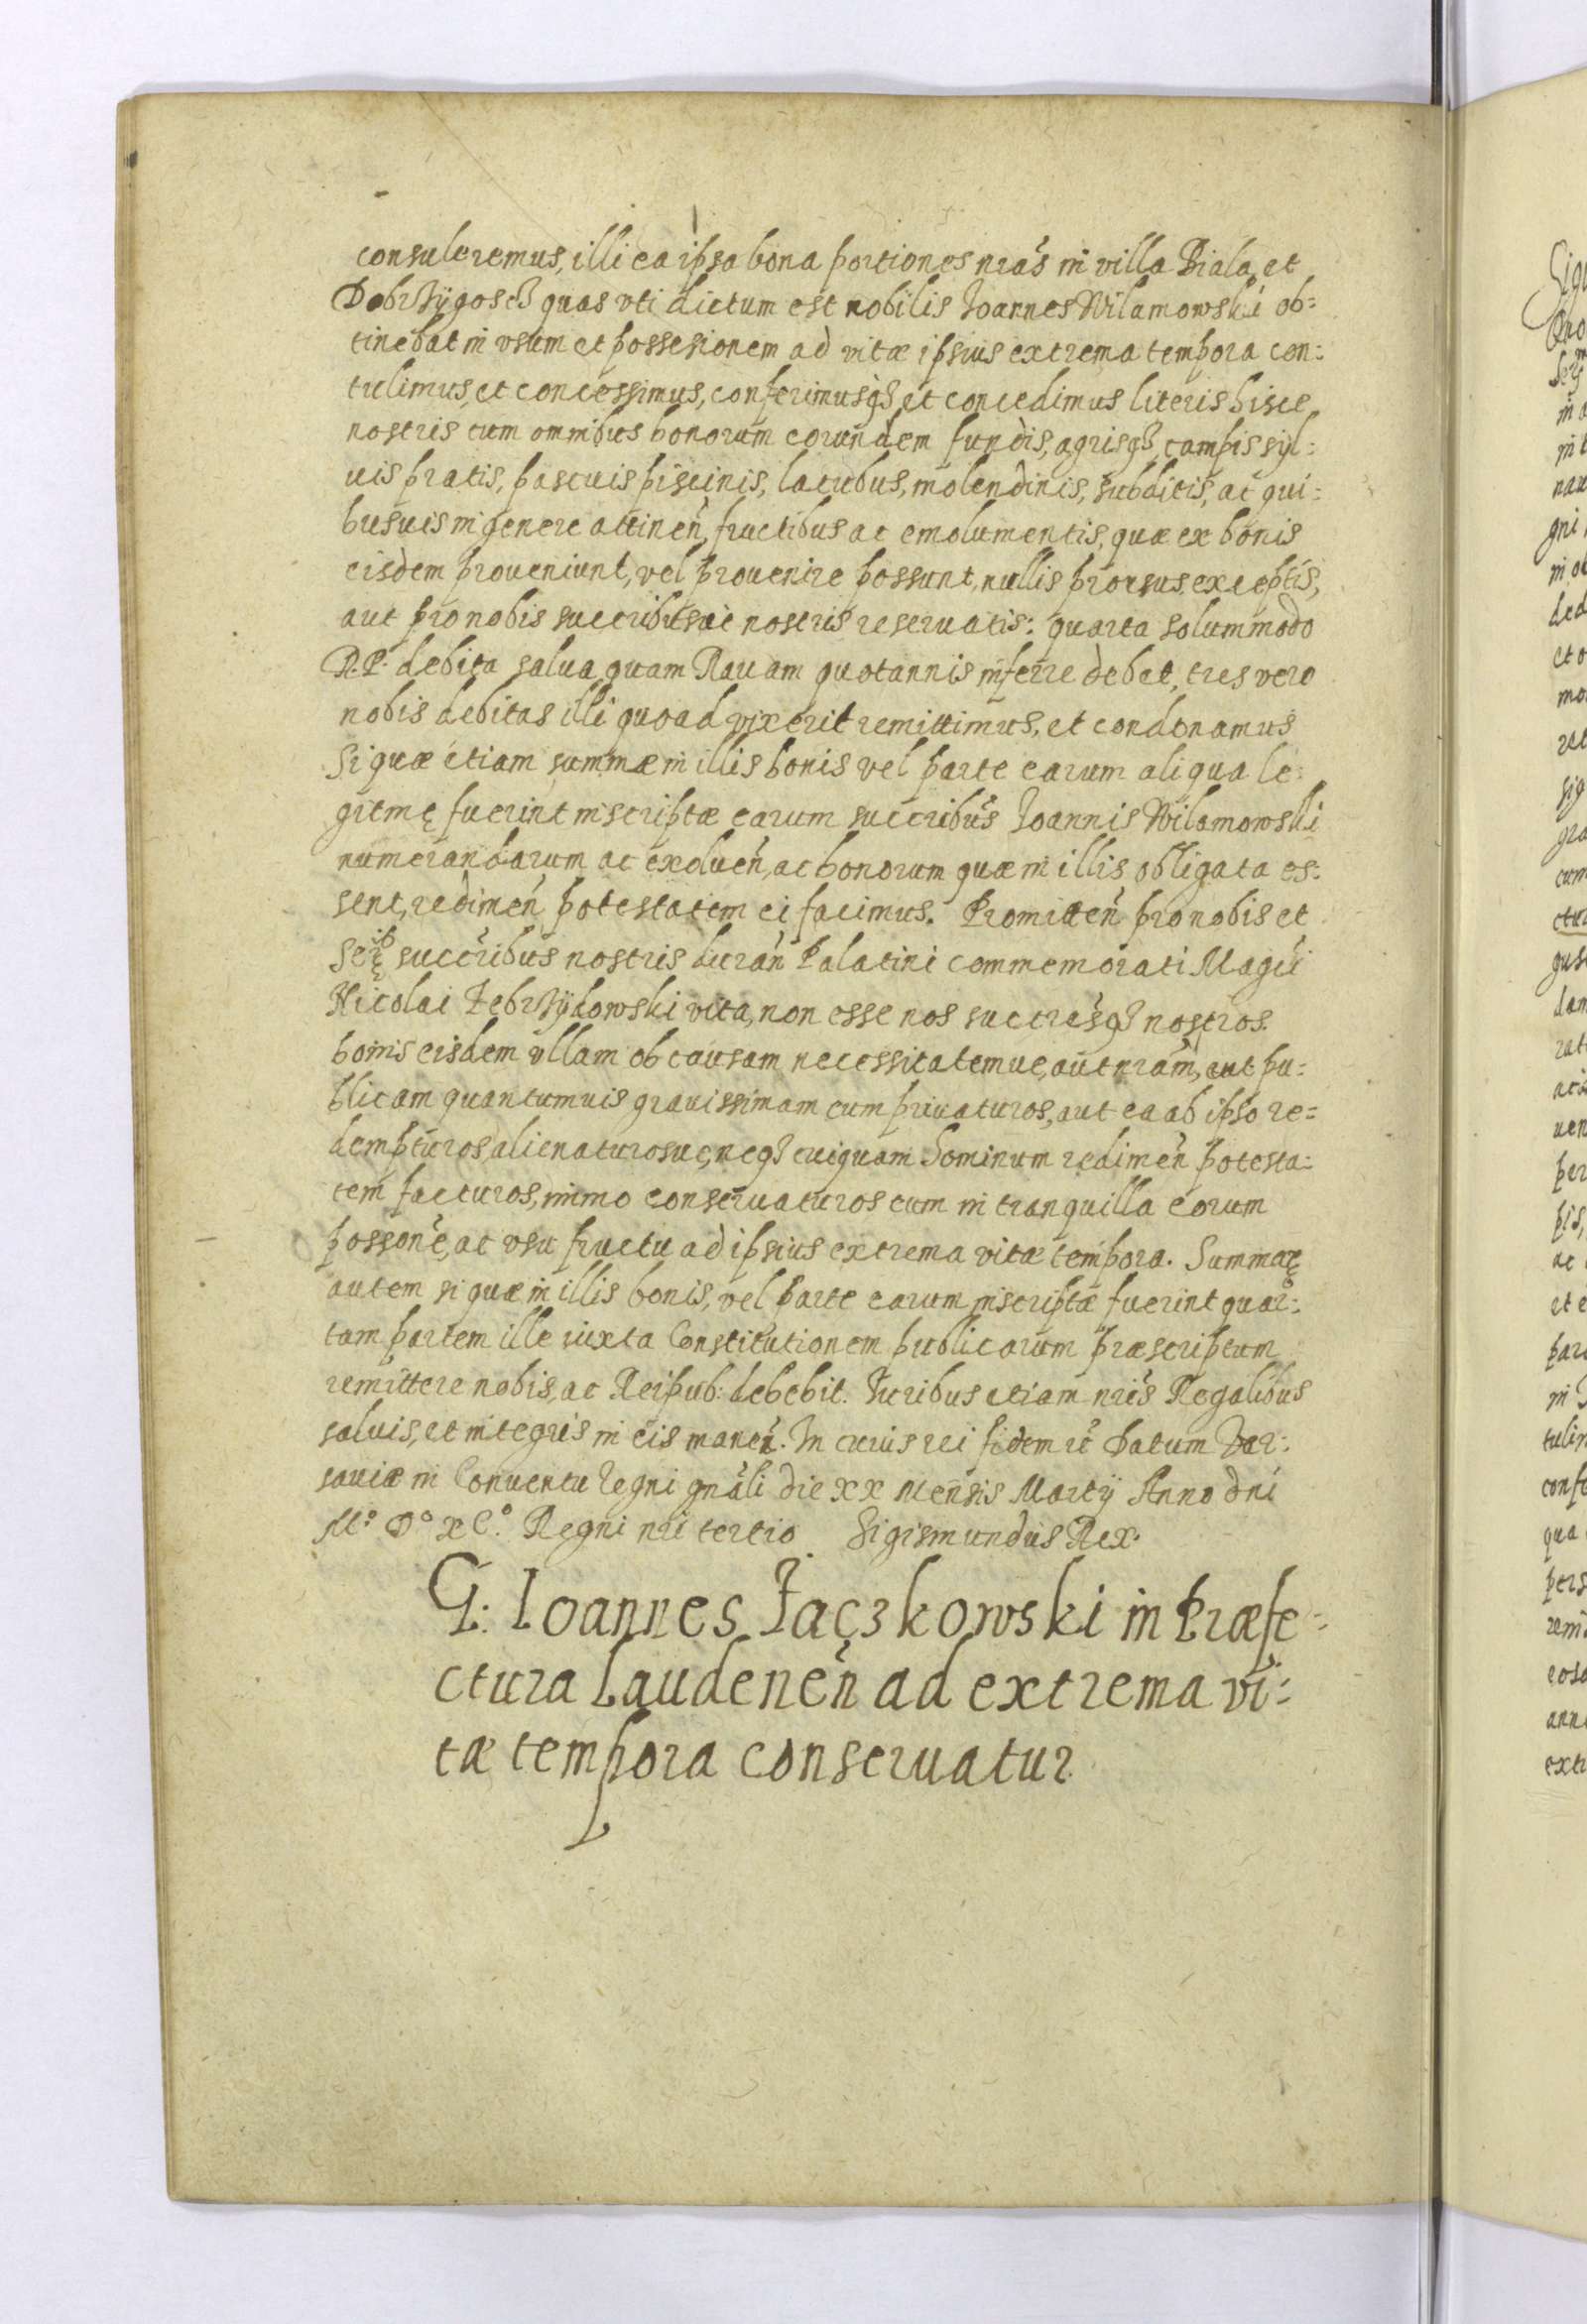 consuleremus, illi ea ipsa bona portiones nrãs in villa Biala, et
Dobrzÿgoscz quas vti dictum est nobilis Ioannes Wilamowski ob=
tinebat in vsum et possesionem ad vitæ ipsius extrema tempora con:
tulimus, et concessimus, conferimusq3, et concedimus literis hisce
nostris cum omnibus bonorum eorundem fundis, agrisq3, campis syl:
uis pratis, pascuis piscinis, lacubus, molendinis, subditis, ac qui:
busuis in genere attineñ, fructibus ac emolumentis, quæ ex bonis
eisdem proueniunt, vel prouenire possunt, nullis prorsus exceptis,
aut pro nobis succribusue nostris reseruatis: quarta solummodo
R.P. debita salua, quam Rauam quotannis inferre debet, tres vero
nobis debitas illi quoad vixerit remittimus, et condonamus
Si quæ etiam summæ in illis bonis vel parte earum aliqua le:
gitmę fuerint inscriptæ earum succribũs Ioannis Wilamowski
numerandarum ac exolueñ, ac bonorum quæ in illis obligata es:
sent, redimeñ, potestatem ei facimus. Promitteñ pro nobis et
Serę succribus nostris durañ Palatini commemorati Magci
Nicolai Zebrzÿdowski vita, non esse nos succresq3 nostros
bonis eisdem vllam ob causam necessitatemue, aut nrãm, aut pu:
blicam quantumuis grauissimam eum priuaturos, aut ea ab ipso re=
dempturos, alienaturosue, neq3 cuiquam hominum redimeñ potesta:
tem facturos, immo conseruaturos eum in tranquilla eorum
possone, ac vsu fructu ad ipsius extrema vitæ tempora. Summæ
autem si quæ in illis bonis, vel parte earum inscriptæ fuerint quar:
tam partem ille iuxta Constitutionem publicarum præscriptum
remittere nobis, ac Reipub: debebit. Iuribus etiam nris Regalibus
saluis, et integris in eis maneñ. In cuius rei fidem etc Datum Var:
sauiæ in Conuentu regni gnãli die XX Mensis Martÿ Anno dni
Mº Dº XCº. Regni nri tertio Sigismundus Rex.
G: Ioannes Iaczkowski in Præfe=
ctura Laudeneñ ad extrema vi:
tæ tempora conseruatur